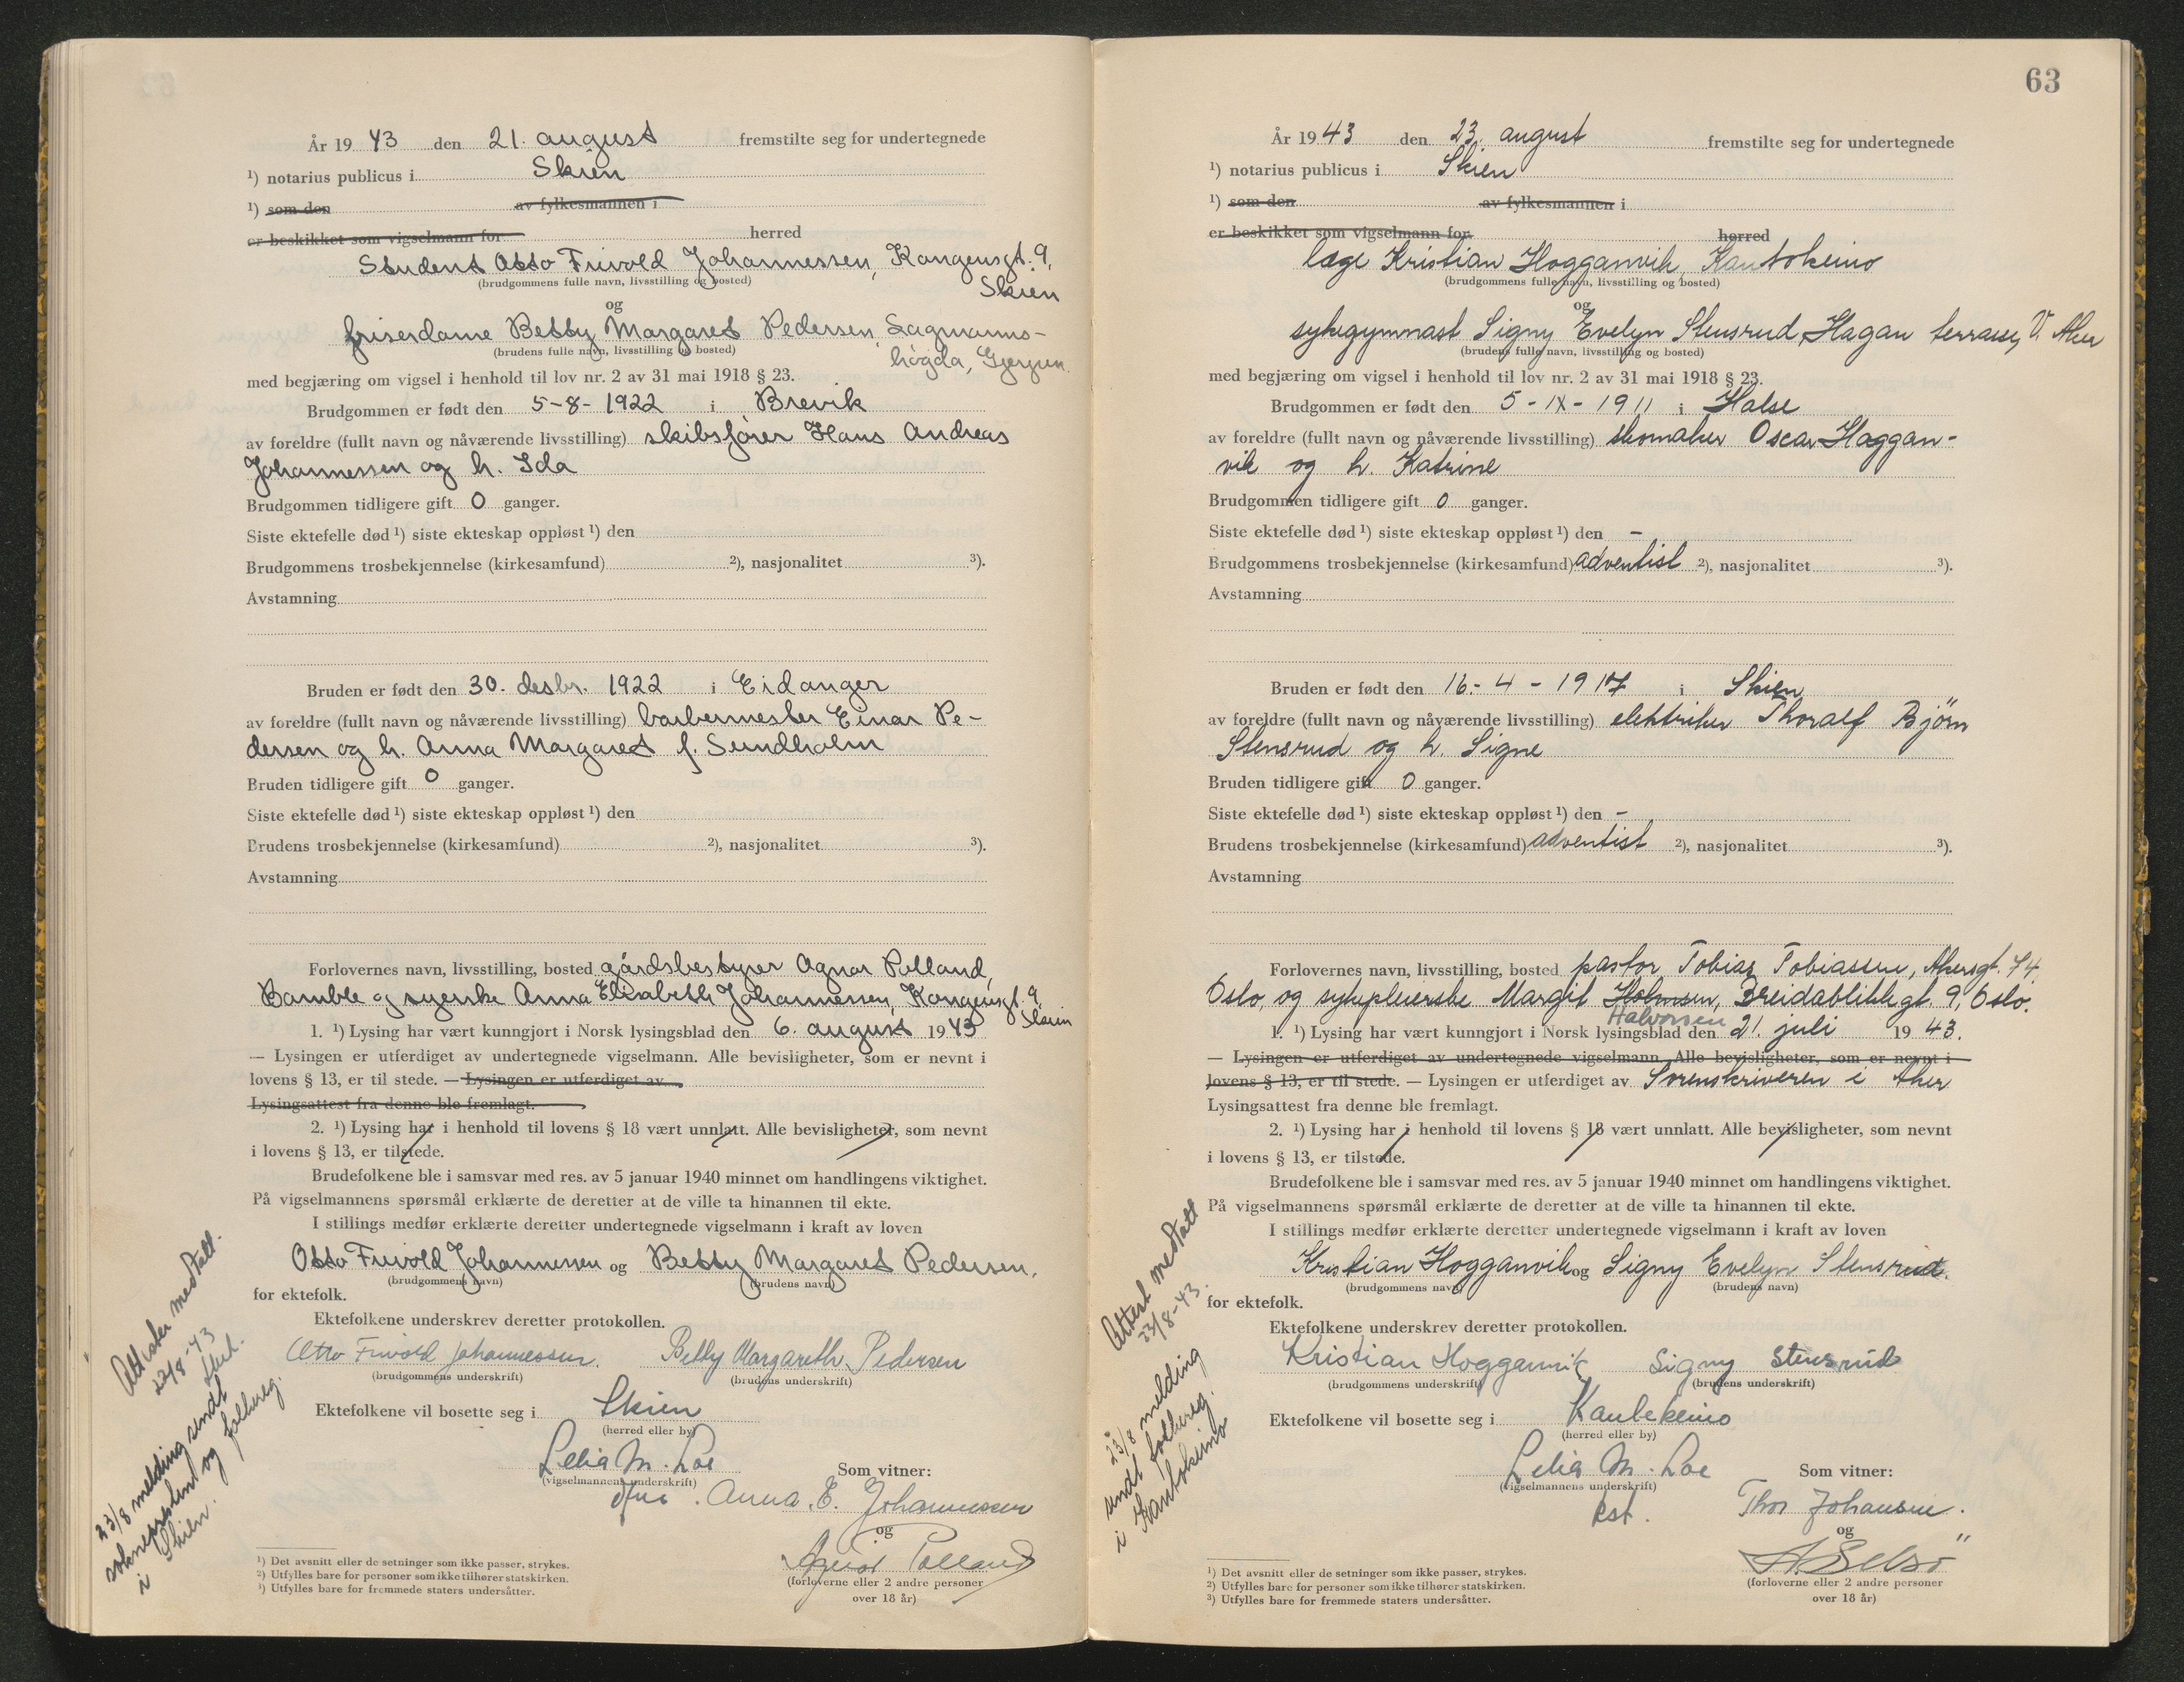 År 1943 den 21. august fremstilte seg for undertegnede
¹) notarius publicus i Skien
¹) som den av fylkesmannen i
er beskikket som vigselmann for herred
Student Otto Frivold Johannessen, Kongensgt. 9,
Skien
(brudgommens fulle navn, livsstilling og bosted)
og
friserdame Betty Margaret Pedersen, Lagmanns-
høgda, Gjerpen.
(brudens fulle navn, livsstilling og bosted)
med begjæring om vigsel i henhold til lov nr. 2 av 31 mai 1918 § 23.
Brudgommen er født den 5-8-1922 i Brevik
av foreldre (fullt navn og nåværende livsstilling) skibsfører Hans Andreas
Johannessen og h. Ida
Brudgommen tidligere gift 0 ganger.
Siste ektefelle død ¹) siste ekteskap oppløst ¹) den
Brudgommens trosbekjennelse (kirkesamfund) ²), nasjonalitet ³).
Avstamning
Bruden er født den 30. desbr. 1922 i Eidanger
av foreldre (fullt navn og nåværende livsstilling) barbermester Einar Pe-
dersen og h. Anna Margaret f. Sundholm
Bruden tidligere gift 0 ganger.
Siste ektefelle død ¹) siste ekteskap oppløst ¹) den
Brudens trosbekjennelse (kirkesamfund) ²), nasjonalitet ³).
Avstamning
Forlovernes navn, livsstilling, bosted gårdsbestyrer Agnar Polland,
Bamble og syerske Anna Elisabeth Johannessen, Kongensgt. 9,
Skien
1. ¹) Lysing har vært kunngjort i Norsk lysingsblad den 6. august 1943
— Lysingen er utferdiget av undertegnede vigselmann. Alle bevisligheter, som er nevnt i
lovens § 13, er til stede. — Lysingen er utferdiget av
Lysingsattest fra denne ble fremlagt.
2. ¹) Lysing har i henhold til lovens § 18 vært unnlatt. Alle bevisligheter, som nevnt
i lovens § 13, er tilstede.
Brudefolkene ble i samsvar med res. av 5 januar 1940 minnet om handlingens viktighet.
På vigselmannens spørsmål erklærte de deretter at de ville ta hinannen til ekte.
I stillings medfør erklærte deretter undertegnede vigselmann i kraft av loven
Otto Frivold Johannessen og Betty Margaret Pedersen.
(brudgommens navn) (brudens navn)
for ektefolk.
Ektefolkene underskrev deretter protokollen.
Otto Frivold Johannessen. Betty Margareth Pedersen
(brudgommens underskrift) (brudens underskrift)
Ektefolkene vil bosette seg i Skien
(herred eller by)
Lelia M. Loe
(vigselmannens underskrift)
Som vitner:
Anna. E. Johannessen
og
Agnar Polland
(forloverne eller 2 andre personer
over 18 år)
¹) Det avsnitt eller de setninger som ikke passer, strykes.
²) Utfylles bare for personer som ikke tilhører statskirken.
³) Utfylles bare for fremmede staters undersåtter.
Attester medtatt.
23/8-43
23/8 melding sendt
soknepresten og folkereg.
i Skien.
63
År 1943 den 23. august fremstilte seg for undertegnede
¹) notarius publicus i Skien
¹) som den av fylkesmannen i
er beskikket som vigselmann for herred
læge Kristian Hogganvik, Kautokeino
(brudgommens fulle navn, livsstilling og bosted)
og
sykegymnast Signy Evelyn Stensrud, Hagan terrasse, V. Aker
(brudens fulle navn, livsstilling og bosted)
med begjæring om vigsel i henhold til lov nr. 2 av 31 mai 1918 § 23.
Brudgommen er født den 5-IX-1911 i Halse
av foreldre (fullt navn og nåværende livsstilling) skomaker Oscar Hoggan-
vik og h. Katrine
Brudgommen tidligere gift 0 ganger.
Siste ektefelle død ¹) siste ekteskap oppløst ¹) den –
Brudgommens trosbekjennelse (kirkesamfund) adventist ²), nasjonalitet ³).
Avstamning
Bruden er født den 16.-4-1917 i Skien
av foreldre (fullt navn og nåværende livsstilling) elektriker Thoralf Bjørn
Stensrud og h. Signe
Bruden tidligere gift 0 ganger.
Siste ektefelle død ¹) siste ekteskap oppløst ¹) den –
Brudens trosbekjennelse (kirkesamfund) adventist ²), nasjonalitet ³).
Avstamning
Forlovernes navn, livsstilling, bosted pastor Tobias Tobiassen, Akersgt. 74,
Oslo, og sykepleierske Margit Holmsen, Breidablikkgt. 9, Oslo.
Halvorsen
1. ¹) Lysing har vært kunngjort i Norsk lysingsblad den 21. juli 1943.
— Lysingen er utferdiget av undertegnede vigselmann. Alle bevisligheter, som er nevnt i
lovens § 13, er til stede. — Lysingen er utferdiget av Sorenskriveren i Aker
Lysingsattest fra denne ble fremlagt.
2. ¹) Lysing har i henhold til lovens § 18 vært unnlatt. Alle bevisligheter, som nevnt
i lovens § 13, er tilstede.
Brudefolkene ble i samsvar med res. av 5 januar 1940 minnet om handlingens viktighet.
På vigselmannens spørsmål erklærte de deretter at de ville ta hinannen til ekte.
I stillings medfør erklærte deretter undertegnede vigselmann i kraft av loven
Kristian Hogganvik og Signy Evelyn Stensrud.
(brudgommens navn) (brudens navn)
for ektefolk.
Ektefolkene underskrev deretter protokollen.
Kristian Hogganvik Signy Stensrud
(brudgommens underskrift) (brudens underskrift)
Ektefolkene vil bosette seg i Kautokeino
(herred eller by)
Lelia M. Loe
(vigselmannens underskrift)
kst.
Som vitner:
Thor Johansen.
og
A. Selsö
(forloverne eller 2 andre personer
over 18 år)
¹) Det avsnitt eller de setninger som ikke passer, strykes.
²) Utfylles bare for personer som ikke tilhører statskirken.
³) Utfylles bare for fremmede staters undersåtter.
Attest medtatt
23/8-43.
23/8 melding
sendt folkereg.
i Kautokeino